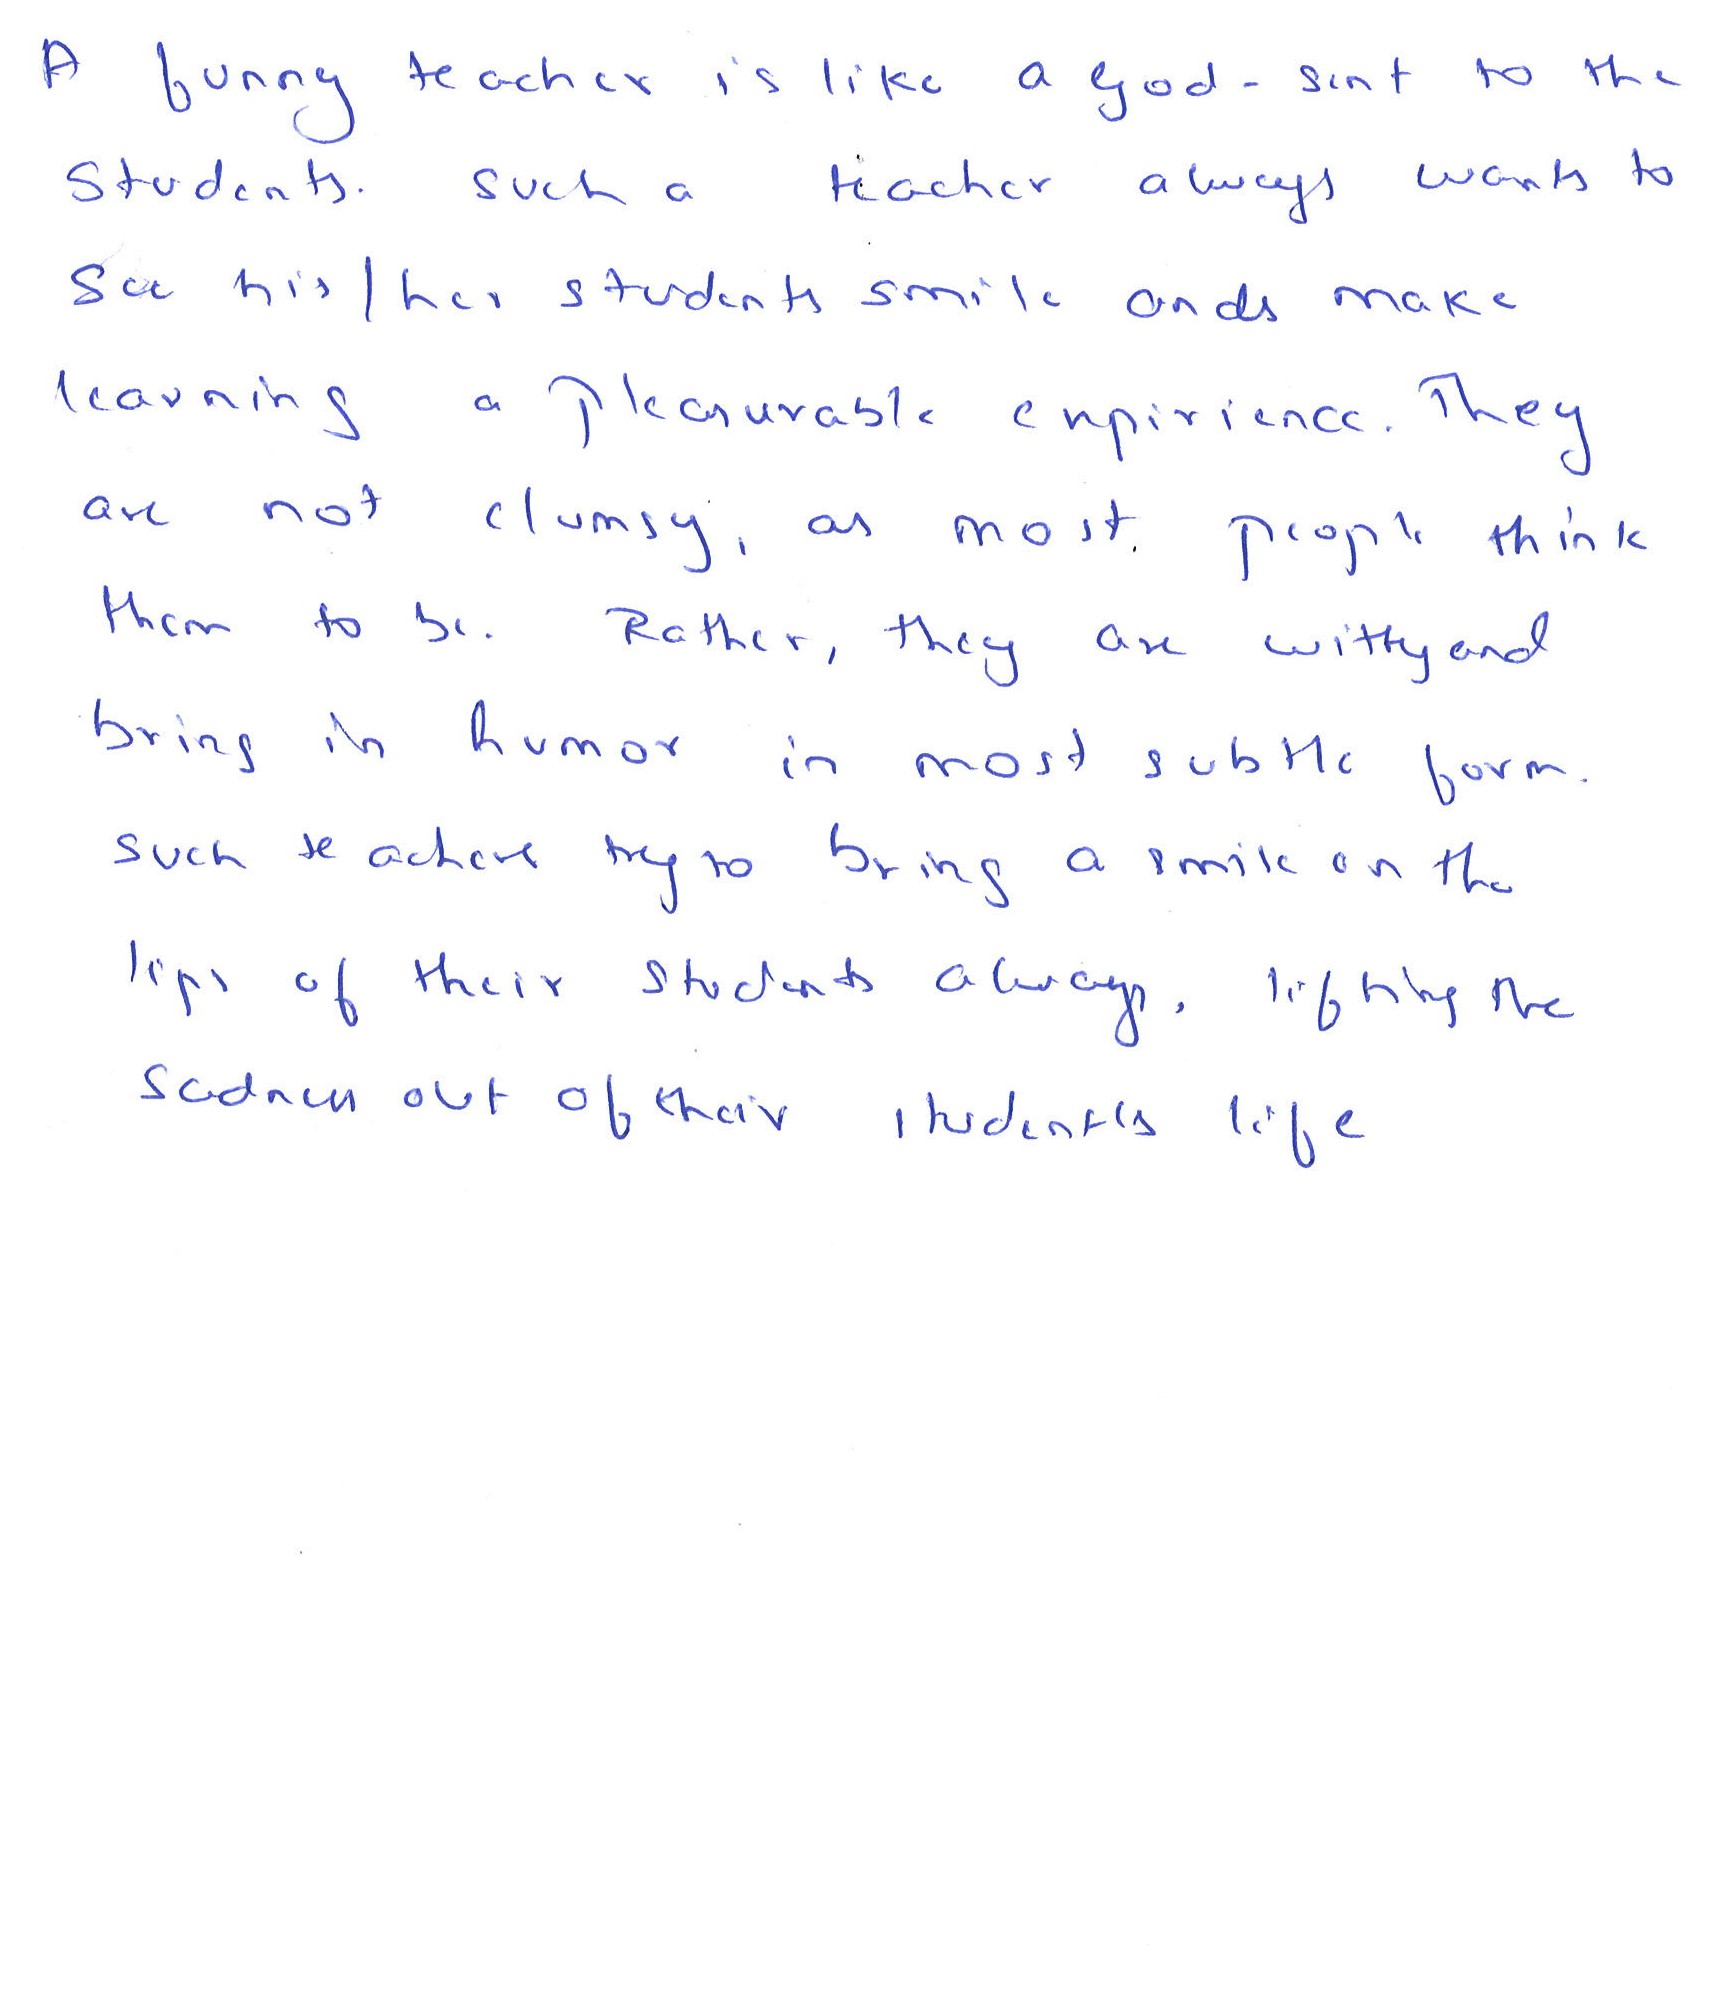 A funny teacher is like a God-sent to the
Students. Such a teacher always wants to
See his/her students smile ands make
learning a Pleasurable expirience. They
are not clumsy, as most people think
them to be. Rather, they are witty and
bring in humor in most subtle form.
Such teachers try to bring a smile on the
lips of their Students always, lifting the
Sadness out of their students life